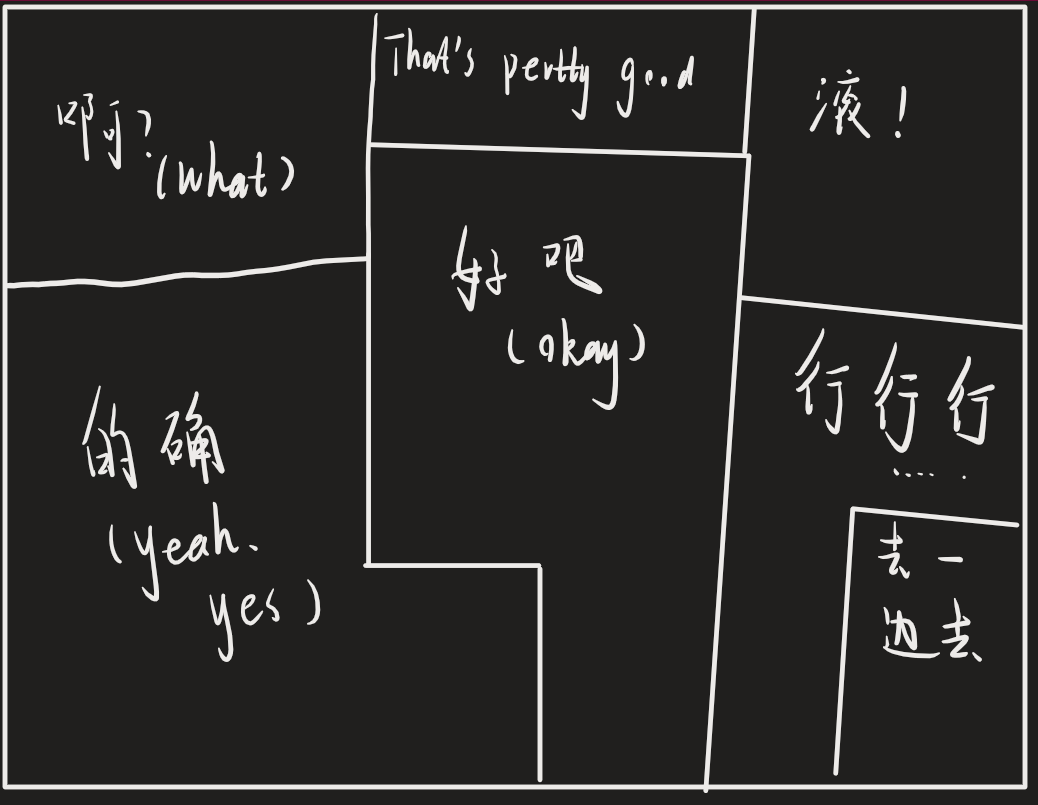 啊?
(what)
That's pertty good
液!
好吧
(okay)
的确
(yeah.
yes)
行行行
......
去一
边去